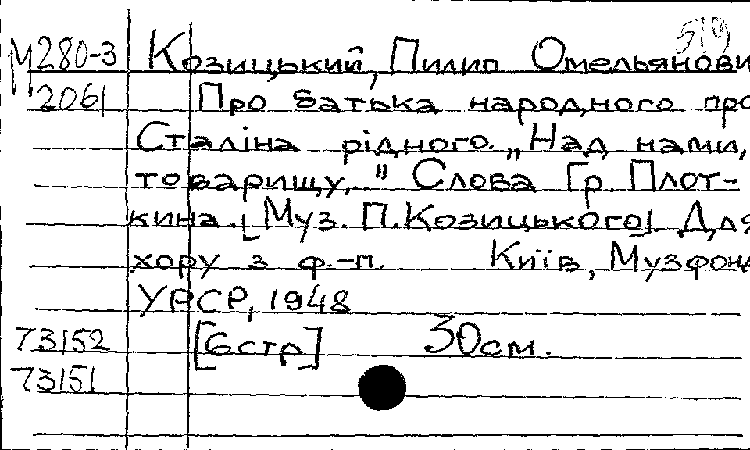 519
М280-3 Козицький, Пилип Омельянови
2061 Про батька народного про
Сталіна рідного. „Над нами,
товариш​у." Слова Гр. Плот-
кина. [Муз. П. Козицького] Для
хору з ф.-п. Київ, Музфонд
УРСР, 1948
73152 [6стр] 30см.
73151